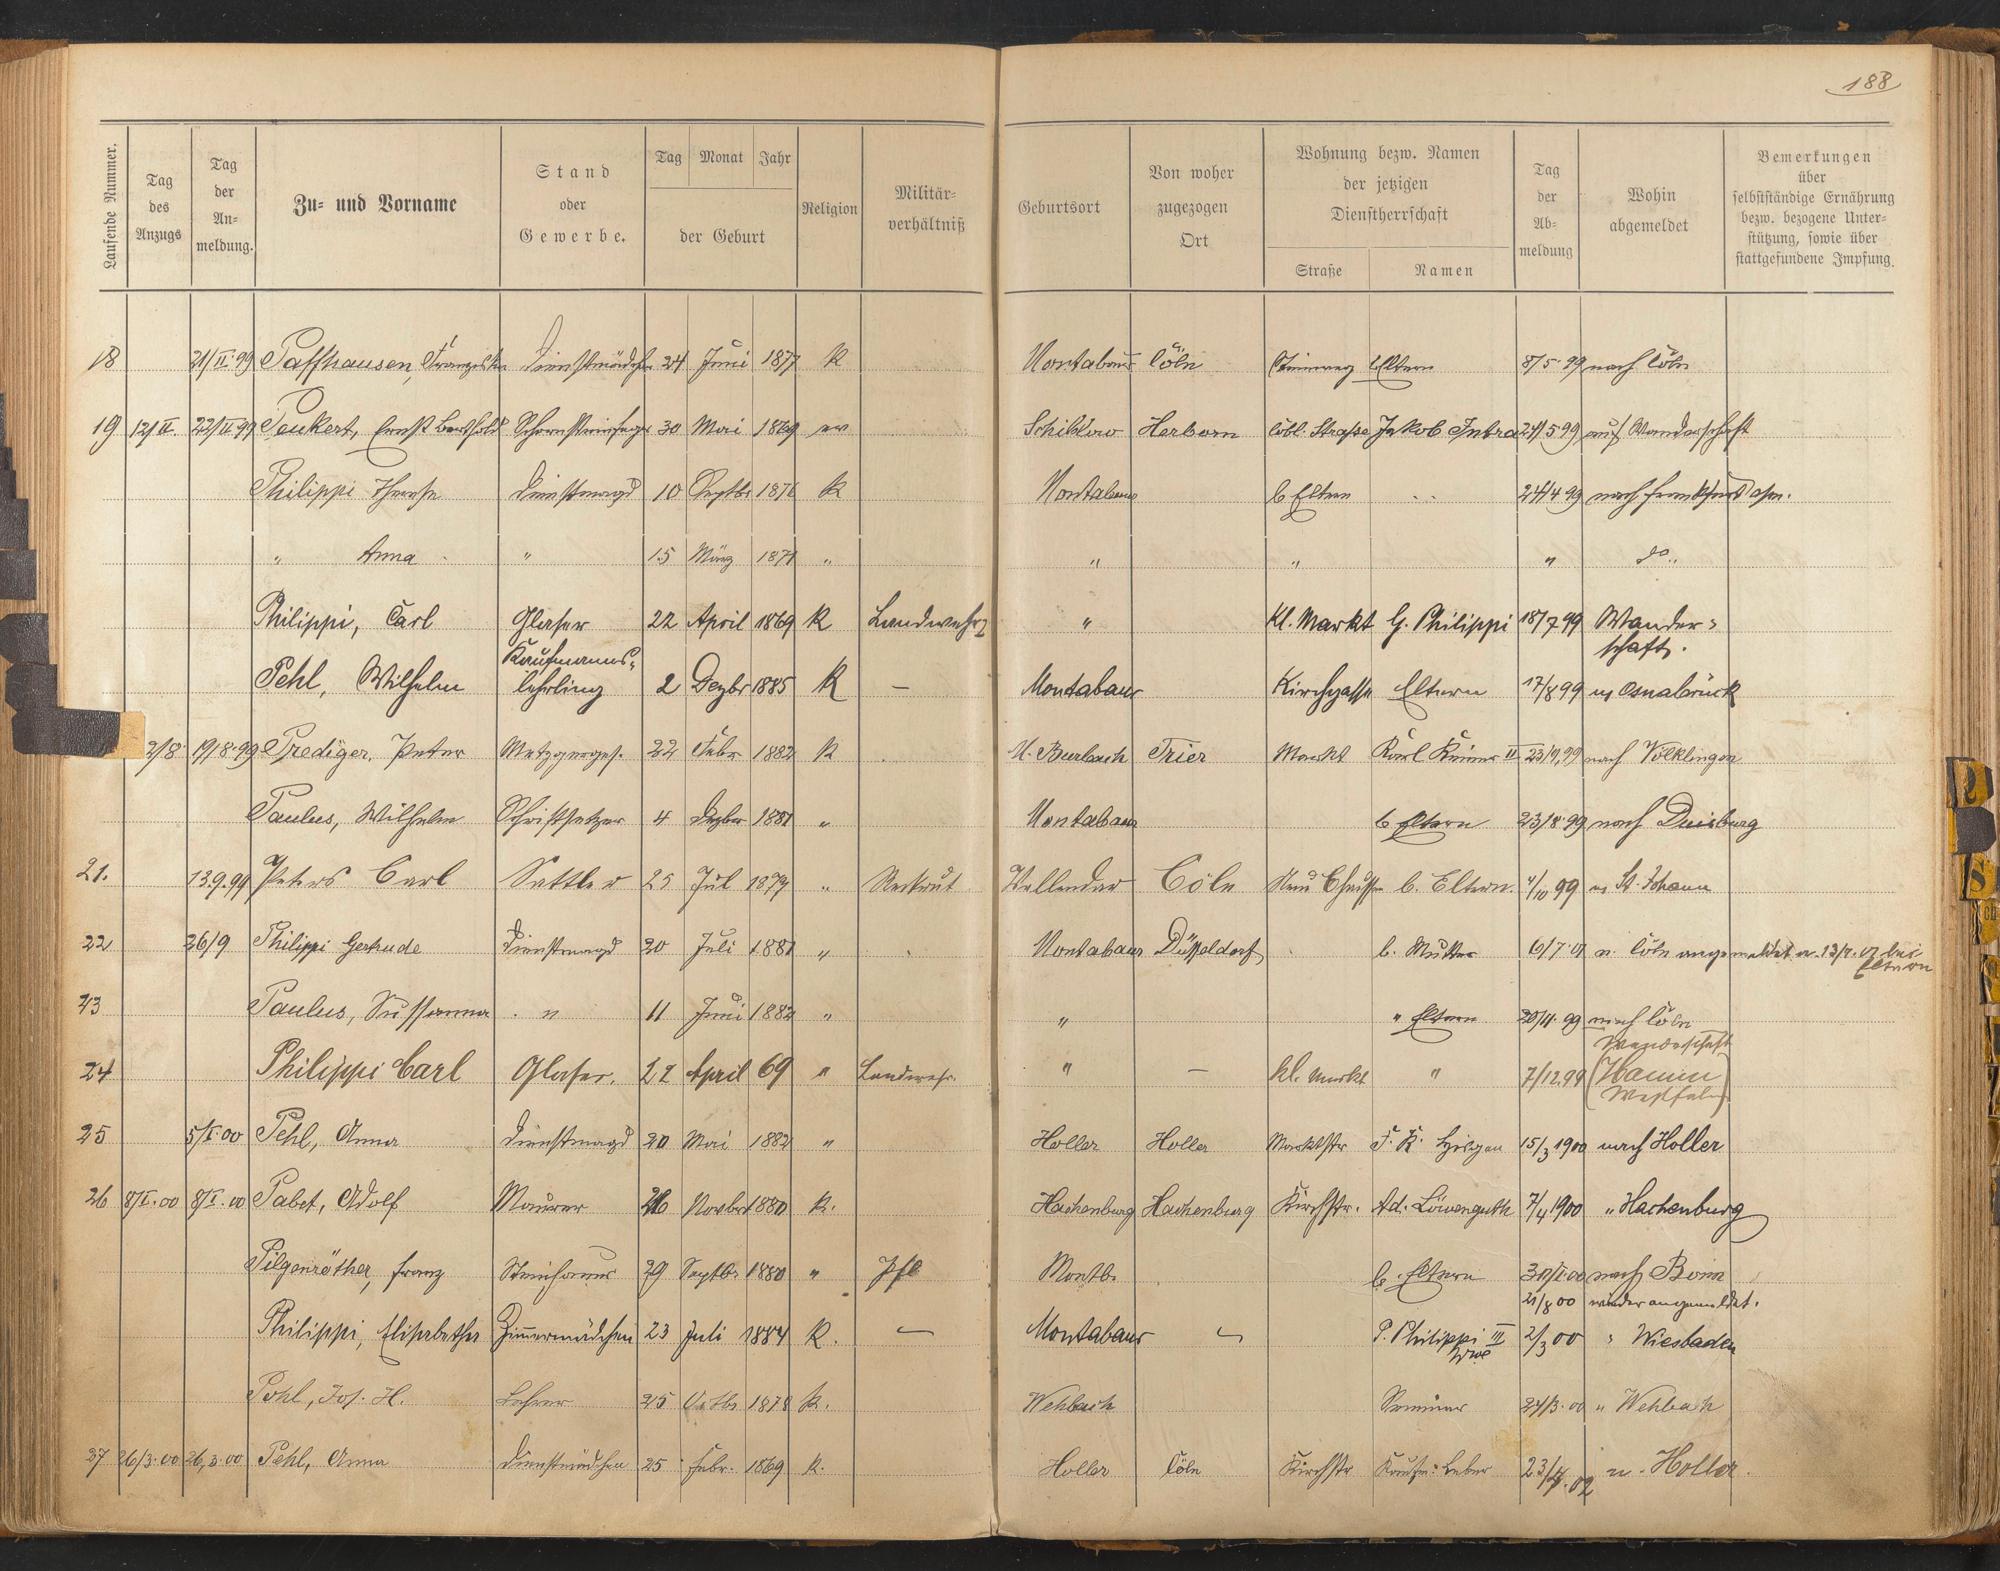 188
Laufende Nummer.
Tag des Anzugs
Tag der An-meldung.
Zu- und Vorname
Stand oder Gewerbe.
Tag Monat Jahr
der Geburt
Religion
Militär-verhältniß
Geburtsort
Von woher zugezogen Ort
Wohnung bezw. Namen der jetzigen Dienstherrschaft
Straße Namen
Tag der Ab-meldung
Wohin abgemeldet
Bemerkungen über selbstständige Ernährung bezw. bezogene Unter-stützung, sowie über stattgefundene Impfung.
18 21/II.99 Paffhausen, Franziska Dienstmädchen 24 Juni 1877 K Montabaur Cöln Steinweg Eltern 8/5.99 nach Cöln
19 12/II. 22/II 99 Paukert, Ernst Berthold Schornsteinfeger 30 Mai 1869 ev Schiklow Herborn Straße Jakob 24/5 99 auf Wanderschaft
Philippi Therese Dienstmagd 10 Septbr 1876 K Montabaur b Eltern 24/4 99 nach Frankfurt a/m.
" Anna " 15 März 1871 " " " " do.
Philippi, Carl Glaser 22 April 1869 K Landwehr I " Kl. Markt G. Philippi 18/7 99 Wander-
schaft.
Pehl, Wilhelm Kaufmanns-
lehrling 2 Dezbr 1885 K — Montabaur Kirchgasse Eltern 17/8 99 n Osnabrück
2/8 19/8.99 Prediger, Peter Metzgerges. 22 Febr 1882 K M. Burbach Trier Markt Karl II 23/9,99 nach Völklingen
Paulus, Wilhelm Schriftsetzer 4 Dezbr 1881 " Montabaur b Eltern 23/8.99 nach Duisburg
21. 13.9.99 Peters Carl Sattler 25 Jul 1879 " Rekrut Vallendar Cöln Neue Chaussee b. Eltern. 4/10 99 n St. Johann
22 26/9 Philippi Gertrude Dienstmagd 20 Juli 1881 " Montabaur Düsseldorf b. Mutter 6/7.01 n. Cöln angemeldet 13/7.07 bei
Eltern
23 Paulus, Sussanna " 11 Juni 1882 " " " Eltern 20/11.99 nach Cöln
24 Philippi Carl Glaser. 22 April 69 " Landwehr. " — kl. Markt " 7/12.99 Wanderschaft
(Hamm
Westfalen)
25 5/I.00 Pehl, Anna Dienstmagd 20 Mai 1882 " Holler Holler Marktstr F. K. 15/3 1900 nach Holler
26 8/I.00 8/I.00 Pabst, Adolf Maurer 26 Novbr 1880 K. Hachenburg Hachenburg Kirchstr. Ad. Löwenguth 7/4 1900 " Hachenburg
Pilgenröther, Franz Steinhauer 29 Septbr 1880 " Pfl Montb. b. Eltern 30/I.00 nach Bonn
21/8 00 wieder angemeldet.
Philippi, Elisabetha Zimmermädchen 23 Juli 1884 K. — Montabaur — P. Philippi III
Wwe 2/3 00 " Wiesbaden
Pohl, Jos. H. Lehrer 25 Octbr 1878 K. Wehbach Seminar 24/3.00 " Wehbach
27 26/3.00 26,3.00 Pehl, Anna Dienstmädchen 25 Febr. 1869 K. Holler Cöln Kirchstr Kaufm. Leber 23/4.02 n. Holler.